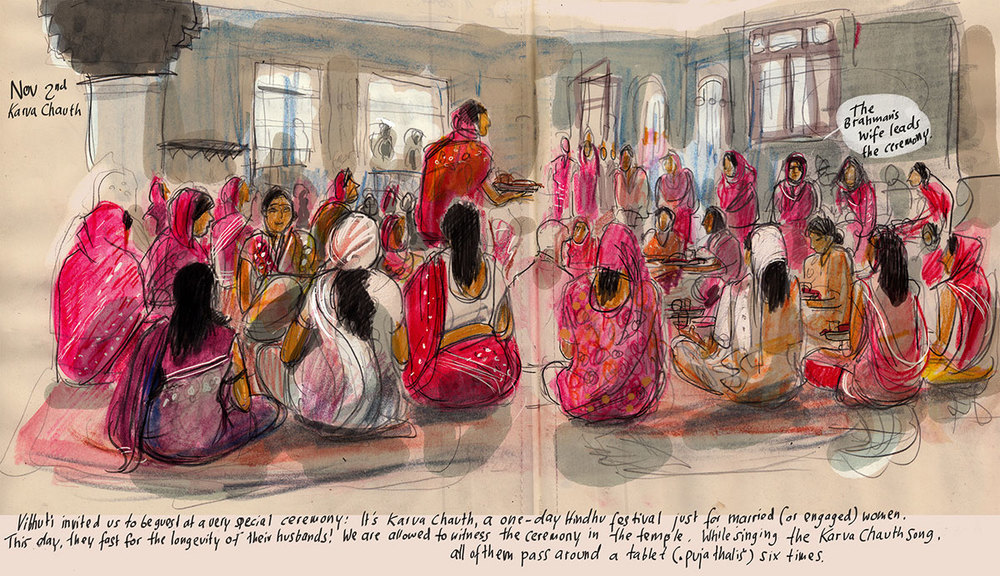 Nov 2nd
Karva Chauth
The
Brahman's
wife leads
the ceremony.
Vibhuti invited us to be guest at a very special ceremony: It's Karva Chauth, a one-day Hindhu festival just for married (or engaged) women.
This day, they fast for the longevity of their husbands! We are allowed to witness the ceremony in the temple. While singing the Karva Chauth song,
all of them pass around a tablet (.puja thalis") six times.